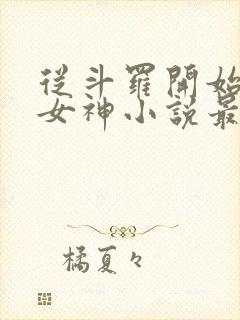 從斗羅開始
女神小說最
橘夏々